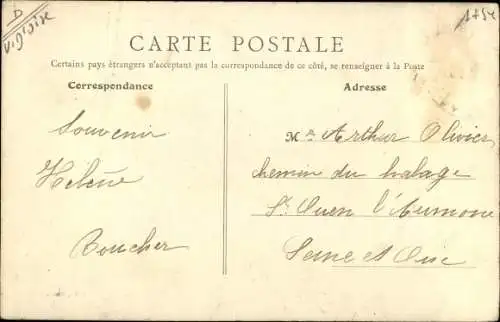 D
1854
CARTE POSTALE
Certains pays étrangers n'acceptant pas la correspondance de ce côté, se renseigner à la Poste
Correspondance
Souvenir
Helène
Boucher
Adresse
Mr Arthur Olivier
chemin du halage
St Ouen l'Aumone
Seine et Oise